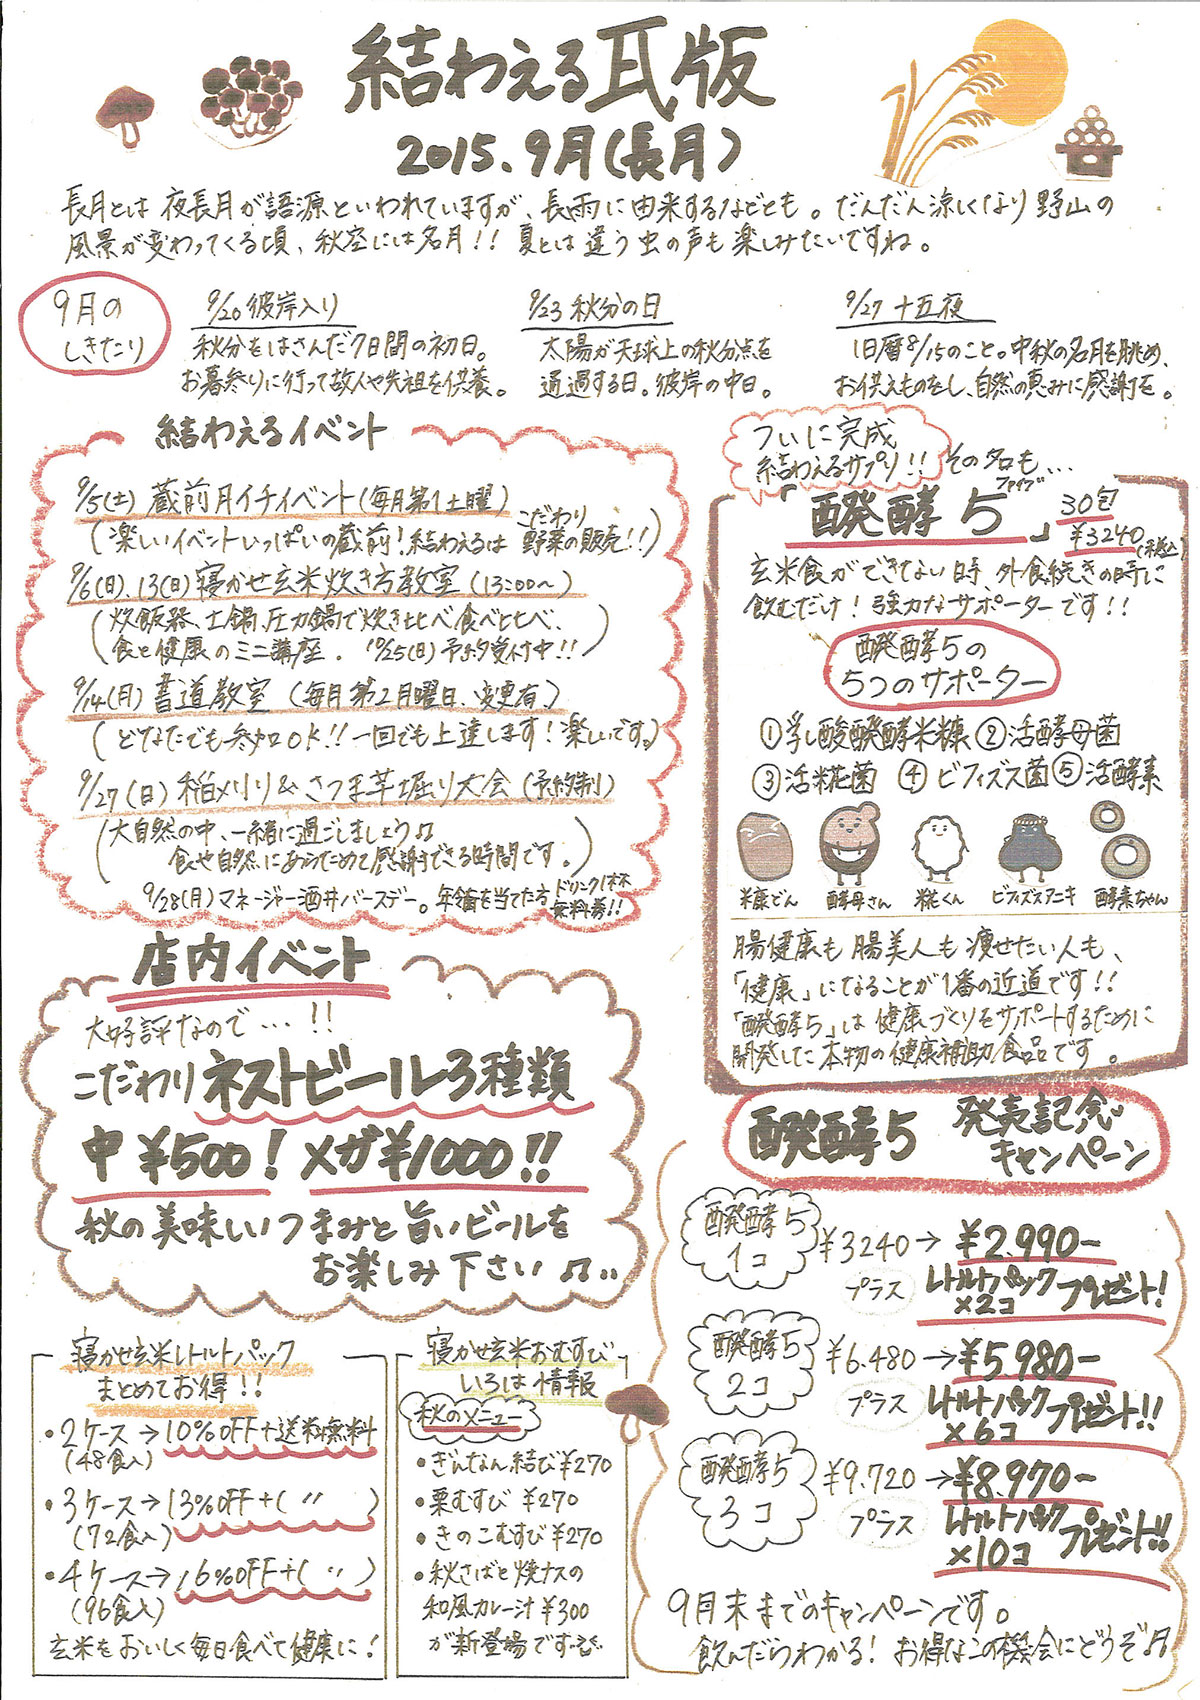 結わえる瓦版
2015.9月(長月)
長月とは夜長月が語源といわれていますが、長雨に由来するなどとも。だんだん涼しくなり野山の
風景が変わってくる頃、秋空には名月!! 夏とは違う虫の声も楽しみたいですね。
9月の
しきたり
9/20 彼岸入り
秋分をはさんだ7日間の初日。
お墓参りに行って故人や先祖を供養。
9/23 秋分の日
太陽が天球上の秋分点を
通過する日。彼岸の中日。
9/27 十五夜
旧暦8/15のこと。中秋の名月を眺め、
お供えものをし、自然の恵みに感謝を。
結わえるイベント
9/5(土) 蔵前月イチイベント(毎月第1土曜)
(楽しいイベントいっぱいの蔵前!結わえるは こだわり野菜の販売!!)
9/6(日)、13(日) 寝かせ玄米炊き方教室 (13:00〜)
(炊飯器、土鍋、圧力鍋で炊き比べ食べ比べ、
食と健康のミニ講座. 10/25(日)予約受付中!!)
9/14(月) 書道教室 (毎月第2月曜日、変更有)
(どなたでも参加OK!! 一回でも上達します!楽しいです。)
9/27(日) 稲刈り&さつま芋堀り大会 (予約制)
(大自然の中、一緒に過ごしましょう♫
食や自然にあらためて感謝できる時間です。)
9/28(月) マネージャー酒井バースデー。年齢を当てた方ドリンク1杯
無料券!!
店内イベント
大好評なので…!!
こだわりネストビール3種類
中¥500! メガ¥1000!!
秋の美味しいつまみと旨いビールを
お楽しみ下さい♫..
寝かせ玄米レトルトパック
まとめてお得!!
・2ケース→10%OFF+送料無料
(48食入)
・3ケース→13%OFF+( 〃 )
(72食入)
・4ケース→16%OFF+( 〃 )
(96食入)
玄米をおいしく毎日食べて健康に!
寝かせ玄米おむすび
いろは情報
秋のメニュー
・ぎんなん結び¥270
・栗むすび ¥270
・きのこむすび¥270
・秋さばと焼ナスの
和風カレー汁¥300
が新登場です
ついに完成
結わえるサプリ!!
その名も…
「醗酵5」
ファイブ
30包
¥3240
(税込)
玄米食ができない時、外食続きの時に
飲むだけ! 強力なサポーターです!!
醗酵5の
5つのサポーター
①乳酸醗酵米糠 ②活酵母菌
③活糀菌 ④ビフィズス菌 ⑤活酵素
米糠どん 酵母さん 糀くん ビフィズスアニキ 酵素ちゃん
腸健康も腸美人も痩せたい人も、
「健康」になることが1番の近道です!!
「醗酵5」は健康づくりをサポートするために
開発した本物の健康補助食品です。
醗酵5 発売記念
キャンペーン
醗酵5
1コ
¥3240→¥2,990-
プラス
レトルトパック
×2コ
プレゼント!
醗酵5
2コ
¥6.480→¥5.980-
プラス
レトルトパック
×6コ
プレゼント!!
醗酵5
3コ
¥9.720→¥8,970-
プラス
レトルトパック
×10コ
プレゼント!!
9月末までのキャンペーンです。
飲んだらわかる! お得なこの機会にどうぞ♫